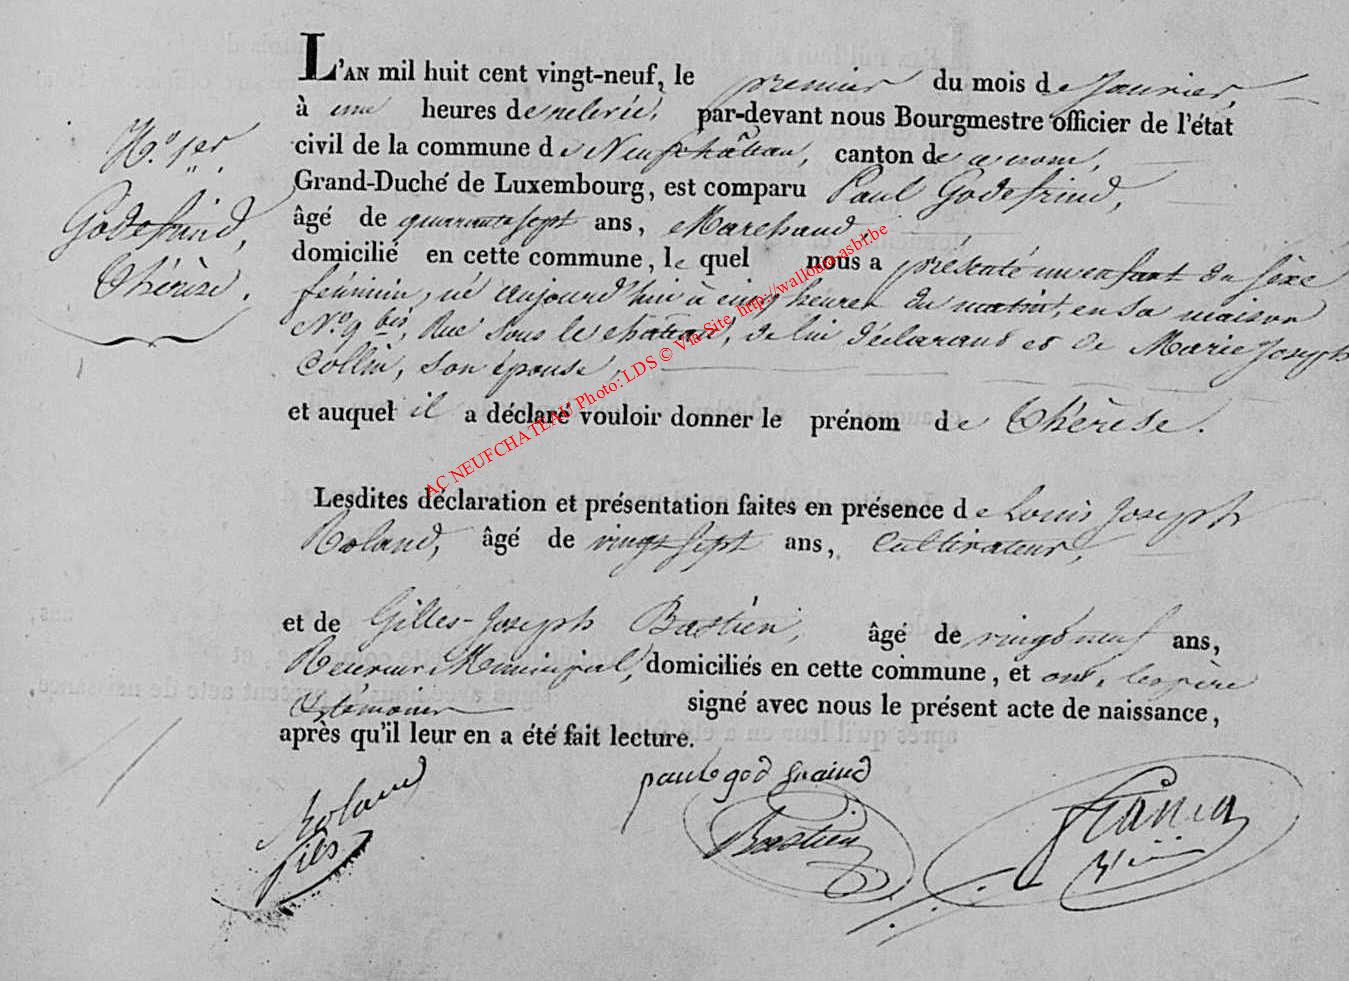 L'AN mil huit cent vingt-neuf, le premier du mois de Janvier,
à une heures de relevée, par-devant nous Bourgmestre officier de l'état
civil de la commune de Neufchâteau, canton de ce nom,
N.º 1er
Grand-Duché de Luxembourg, est comparu Paul Godefrind,
Godefrind,
Thérèse.
âgé de quarante sept ans, Marchand,
domicilié en cette commune, le quel nous a présenté un enfant du sexe
féminin, né aujourd'hui à cinq heures du matin, en sa maison
N.º 9 bis, Rue Sous le château, de lui déclarant et de Marie Joseph
Collin, son épouse,
et auquel il a déclaré vouloir donner le prénom de Thérèse.
AC NEUFCHATEAU Photo: LDS © Via Site http://wallonia.asbl.be
Lesdites déclaration et présentation faites en présence de Louis Joseph
Roland, âgé de vingt sept ans, Cultivateur,
et de Gilles-Joseph Bastien, âgé de vingt neuf ans,
Receveur Municipal, domiciliés en cette commune, et ont, les père
et témoins signé avec nous le présent acte de naissance,
après qu'il leur en a été fait lecture.
Roland
fils
paul god fraind
Bastien